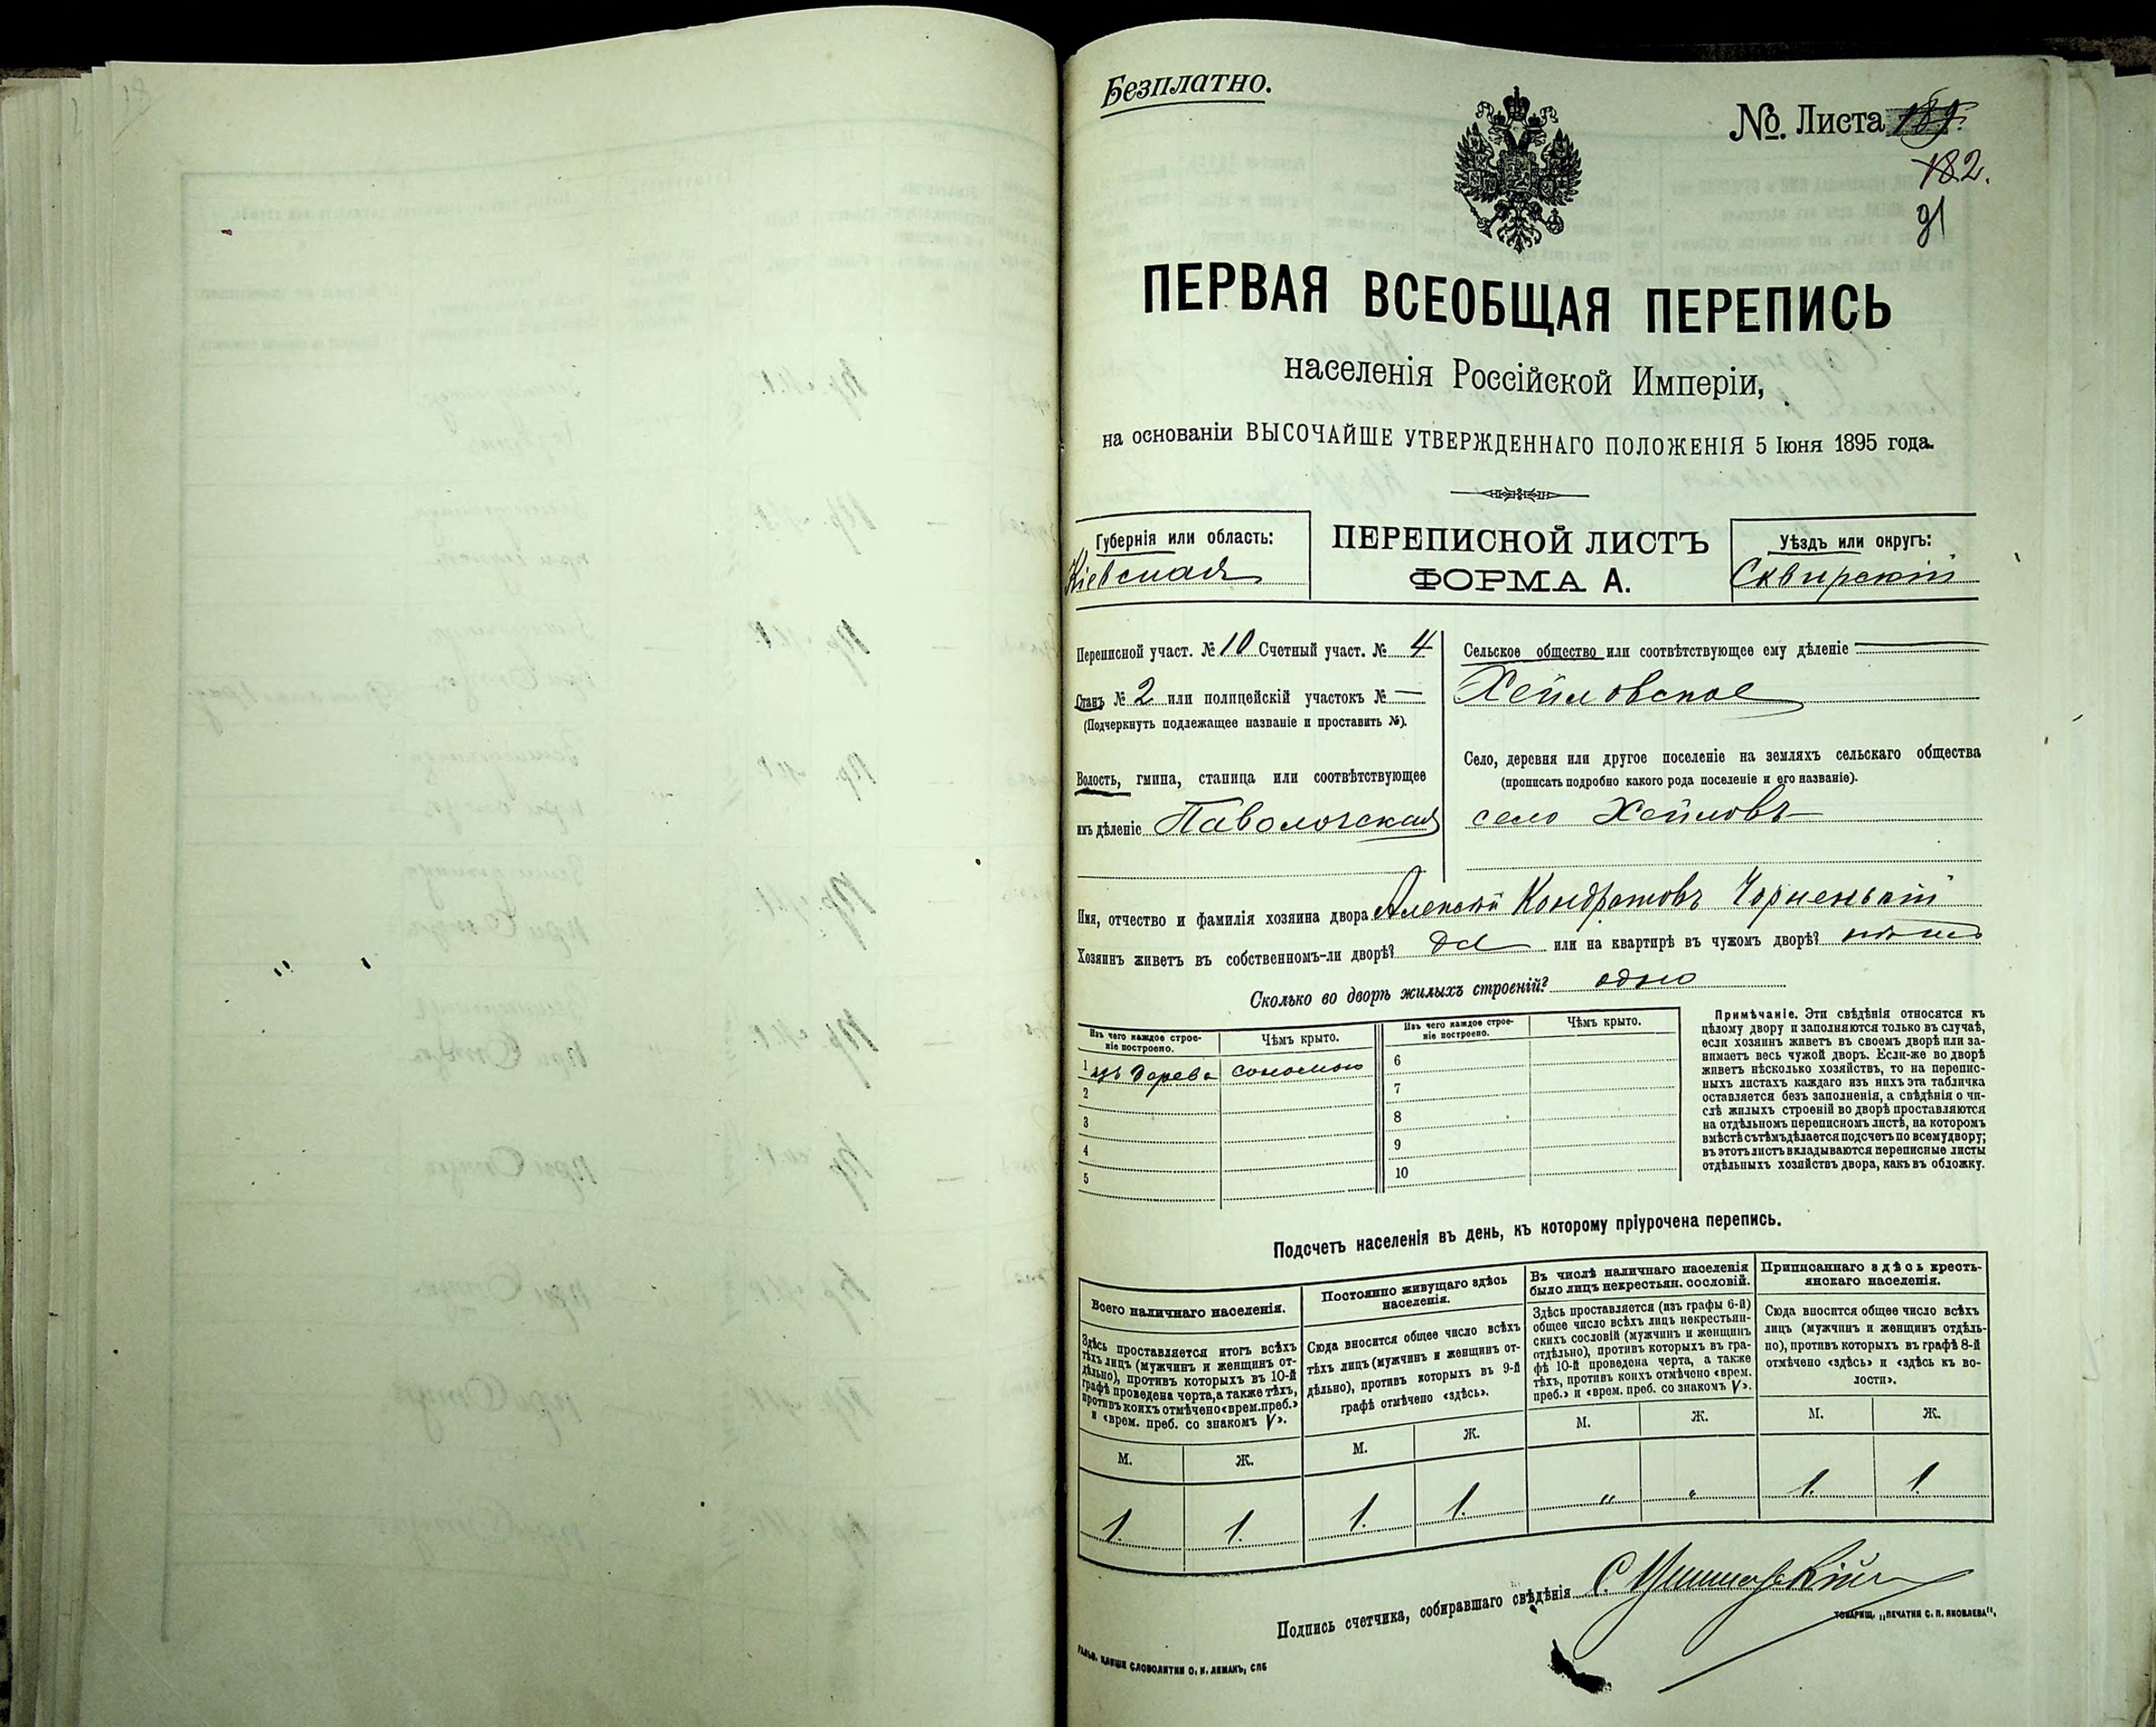 Безплатно.
№ Листа
182.
91
ПЕРВАЯ ВСЕОБЩАЯ ПЕРЕПИСЬ
населенія Россійской Имперіи,
на основаніи ВЫСОЧАЙШЕ УТВЕРЖДЕННАГО ПОЛОЖЕНІЯ 5 Іюня 1895 года.
Губернія или область:
Кіевская
ПЕРЕПИСНОЙ ЛИСТЪ
ФОРМА А.
Уѣздъ или округъ:
Сквирскій
Переписной участ. № 10 Счетный участ. № 4
Станъ № 2 или полицейскій участокъ № —
(Подчеркнуть подлежащее названіе и проставить №).
Волость, гмина, станица или соотвѣтствующее
имъ дѣленіе Паволочская
Сельское общество или соотвѣтствующее ему дѣленіе
Хейловское
Село, деревня или другое поселеніе на земляхъ сельскаго общества
(прописать подробно какого рода поселеніе и его названіе).
село Хейловъ
Имя, отчество и фамилія хозяина двора Алексѣй Кондратовъ Чорненькій
Хозяинъ живетъ въ собственномъ-ли дворѣ? да или на квартирѣ въ чужомъ дворѣ?
Сколько во дворѣ жилыхъ строеній? одно
Изъ чего каждое строе-
ніе построено.
Чѣмъ крыто.
Изъ чего каждое строе-
ніе построено.
Чѣмъ крыто.
1 изъ дерева соломою
2
3
4
5
6
7
8
9
10
Примѣчаніе. Эти свѣдѣнія относятся къ
цѣлому двору и заполняются только въ случаѣ,
если хозяинъ живетъ въ своемъ дворѣ или за-
нимаетъ весь чужой дворъ. Если-же во дворѣ
живетъ нѣсколько хозяйствъ, то на перепис-
ныхъ листахъ каждаго изъ нихъ эта табличка
оставляется безъ заполненія, а свѣдѣнія о чи-
слѣ жилыхъ строеній во дворѣ проставляются
на отдѣльномъ переписномъ листѣ, на которомъ
вмѣстѣ съ тѣмъ дѣлается подсчетъ по всему двору;
въ этотъ листъ вкладываются переписные листы
отдѣльныхъ хозяйствъ двора, какъ въ обложку.
Подсчетъ населенія въ день, къ которому пріурочена перепись.
Всего наличнаго населенія.
Здѣсь проставляется итогъ всѣхъ
тѣхъ лицъ (мужчинъ и женщинъ от-
дѣльно), противъ которыхъ въ 10-й
графѣ проведена черта, а также тѣхъ,
противъ коихъ отмѣчено «врем. преб.»
и «врем. преб. со знакомъ V».
М. Ж.
1. 1.
Постоянно живущаго здѣсь
населенія.
Сюда вносится общее число всѣхъ
тѣхъ лицъ (мужчинъ и женщинъ от-
дѣльно), противъ которыхъ въ 9-й
графѣ отмѣчено «здѣсь».
М. Ж.
1. 1.
Въ числѣ наличнаго населенія
было лицъ некрестьян. сословій.
Здѣсь проставляется (изъ графы 6-й)
общее число всѣхъ лицъ некрестьян-
скихъ сословій (мужчинъ и женщинъ
отдѣльно), противъ которыхъ въ гра-
фѣ 10-й проведена черта, а также
тѣхъ, противъ коихъ отмѣчено «врем.
преб.» и «врем. преб. со знакомъ V».
М. Ж.
" "
Приписаннаго здѣсь кресть-
янскаго населенія.
Сюда вносится общее число всѣхъ
лицъ (мужчинъ и женщинъ отдѣль-
но), противъ которыхъ въ графѣ 8-й
отмѣчено «здѣсь» и «здѣсь къ во-
лости».
М. Ж.
1. 1.
Подпись счетчика, собиравшаго свѣдѣнія С.
ТОВАРИЩ. „ПЕЧАТНЯ С. П. ЯКОВЛЕВА".
КЛИШЕ СЛОВОЛИТНИ О. И. ЛЕМАНЪ, СПБ